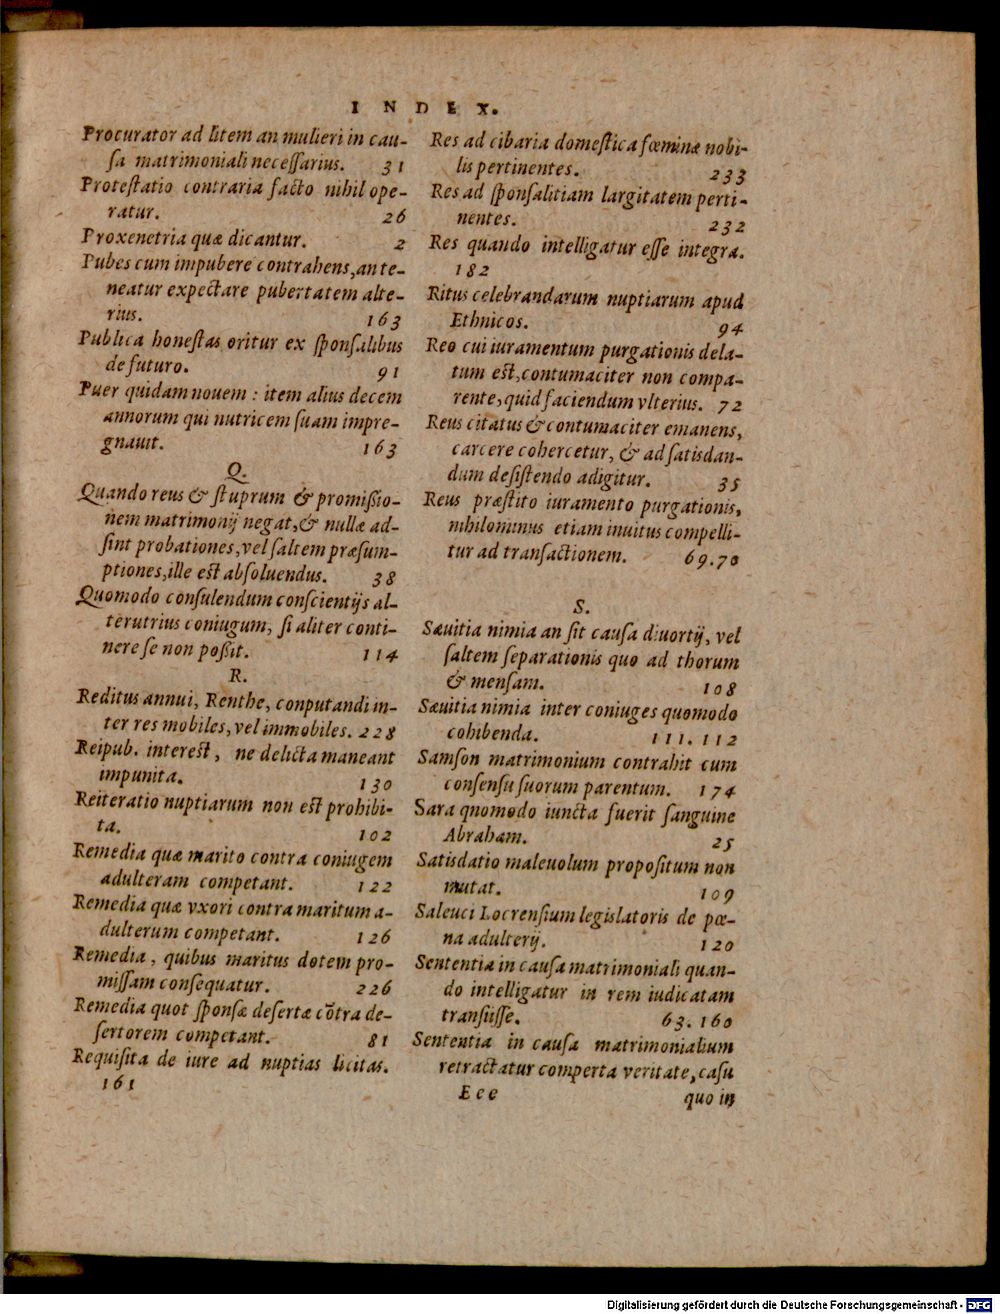 INDEX.
Procurator ad litem an mulieri in cau-
ſa matrimoniali neceſſarius. 31
Proteſtatio contraria facto nihil ope-
ratur. 26
Proxenetria quæ dicantur. 2
Pubes cum impubere contrahens, an te-
neatur expectare pubertatem alte-
rius. 163
Publica honeſtas oritur ex ſponſalibus
de futuro. 91
Puer quidam nouem : item alius decem
annorum qui nutricem ſuam impre-
gnauit. 163
Q.
Quando reus & ſtuprum & promiſsio-
nem matrimonij negat, & nullæ ad-
ſint probationes, vel ſaltem præſum-
ptiones, ille eſt abſoluendus. 38
Quomodo conſulendum conſcientijs al-
terutrius coniugum, ſi aliter conti-
nere ſe non poſsit. 114
R.
Reditus annui, Renthe, conputandi in-
ter res mobiles, vel immobiles. 228
Reipub. intereſt, ne delicta maneant
impunita. 130
Reiteratio nuptiarum non eſt prohibi-
ta. 102
Remedia quæ marito contra coniugem
adulteram competant. 122
Remedia quæ vxori contra maritum a-
dulterum competant. 126
Remedia, quibus maritus dotem pro-
miſſam conſequatur. 226
Remedia quot ſponſæ deſertæ cõtra de-
ſertorem competant. 81
Requiſita de iure ad nuptias licitas.
161
Res ad cibaria domeſtica fœminæ nobi-
lis pertinentes. 233
Res ad ſponſalitiam largitatem perti-
nentes. 232
Res quando intelligatur eſſe integra.
182
Ritus celebrandarum nuptiarum apud
Ethnicos. 94
Reo cui iuramentum purgationis dela-
tum eſt, contumaciter non compa-
rente, quid faciendum vlterius. 72
Reus citatus & contumaciter emanens,
carcere cohercetur, & ad ſatisdan-
dum deſiſtendo adigitur. 35
Reus præſtito iuramento purgationis,
nihilominus etiam inuitus compelli-
tur ad tranſactionem. 69.70
S.
Sæuitia nimia an ſit cauſa diuortij, vel
ſaltem ſeparationis quo ad thorum
& menſam. 108
Sæuitia nimia inter coniuges quomodo
cohibenda. 111. 112
Samſon matrimonium contrahit cum
conſenſu ſuorum parentum. 174
Sara qnomodo iuncta fuerit ſanguine
Abraham. 25
Satisdatio maleuolum propoſitum non
mutat. 109
Saleuci Locrenſium legislatoris de pœ-
na adulterij. 120
Sententia in cauſa matrimoniali quan-
do intelligatur in rem iudicatam
tranſiiſſe. 63. 160
Sententia in cauſa matrimonialium
retractatur comperta veritate, caſu
Eee quo in
Digitalisierung gefördert durch die Deutsche Forschungsgemeinschaft - DFG